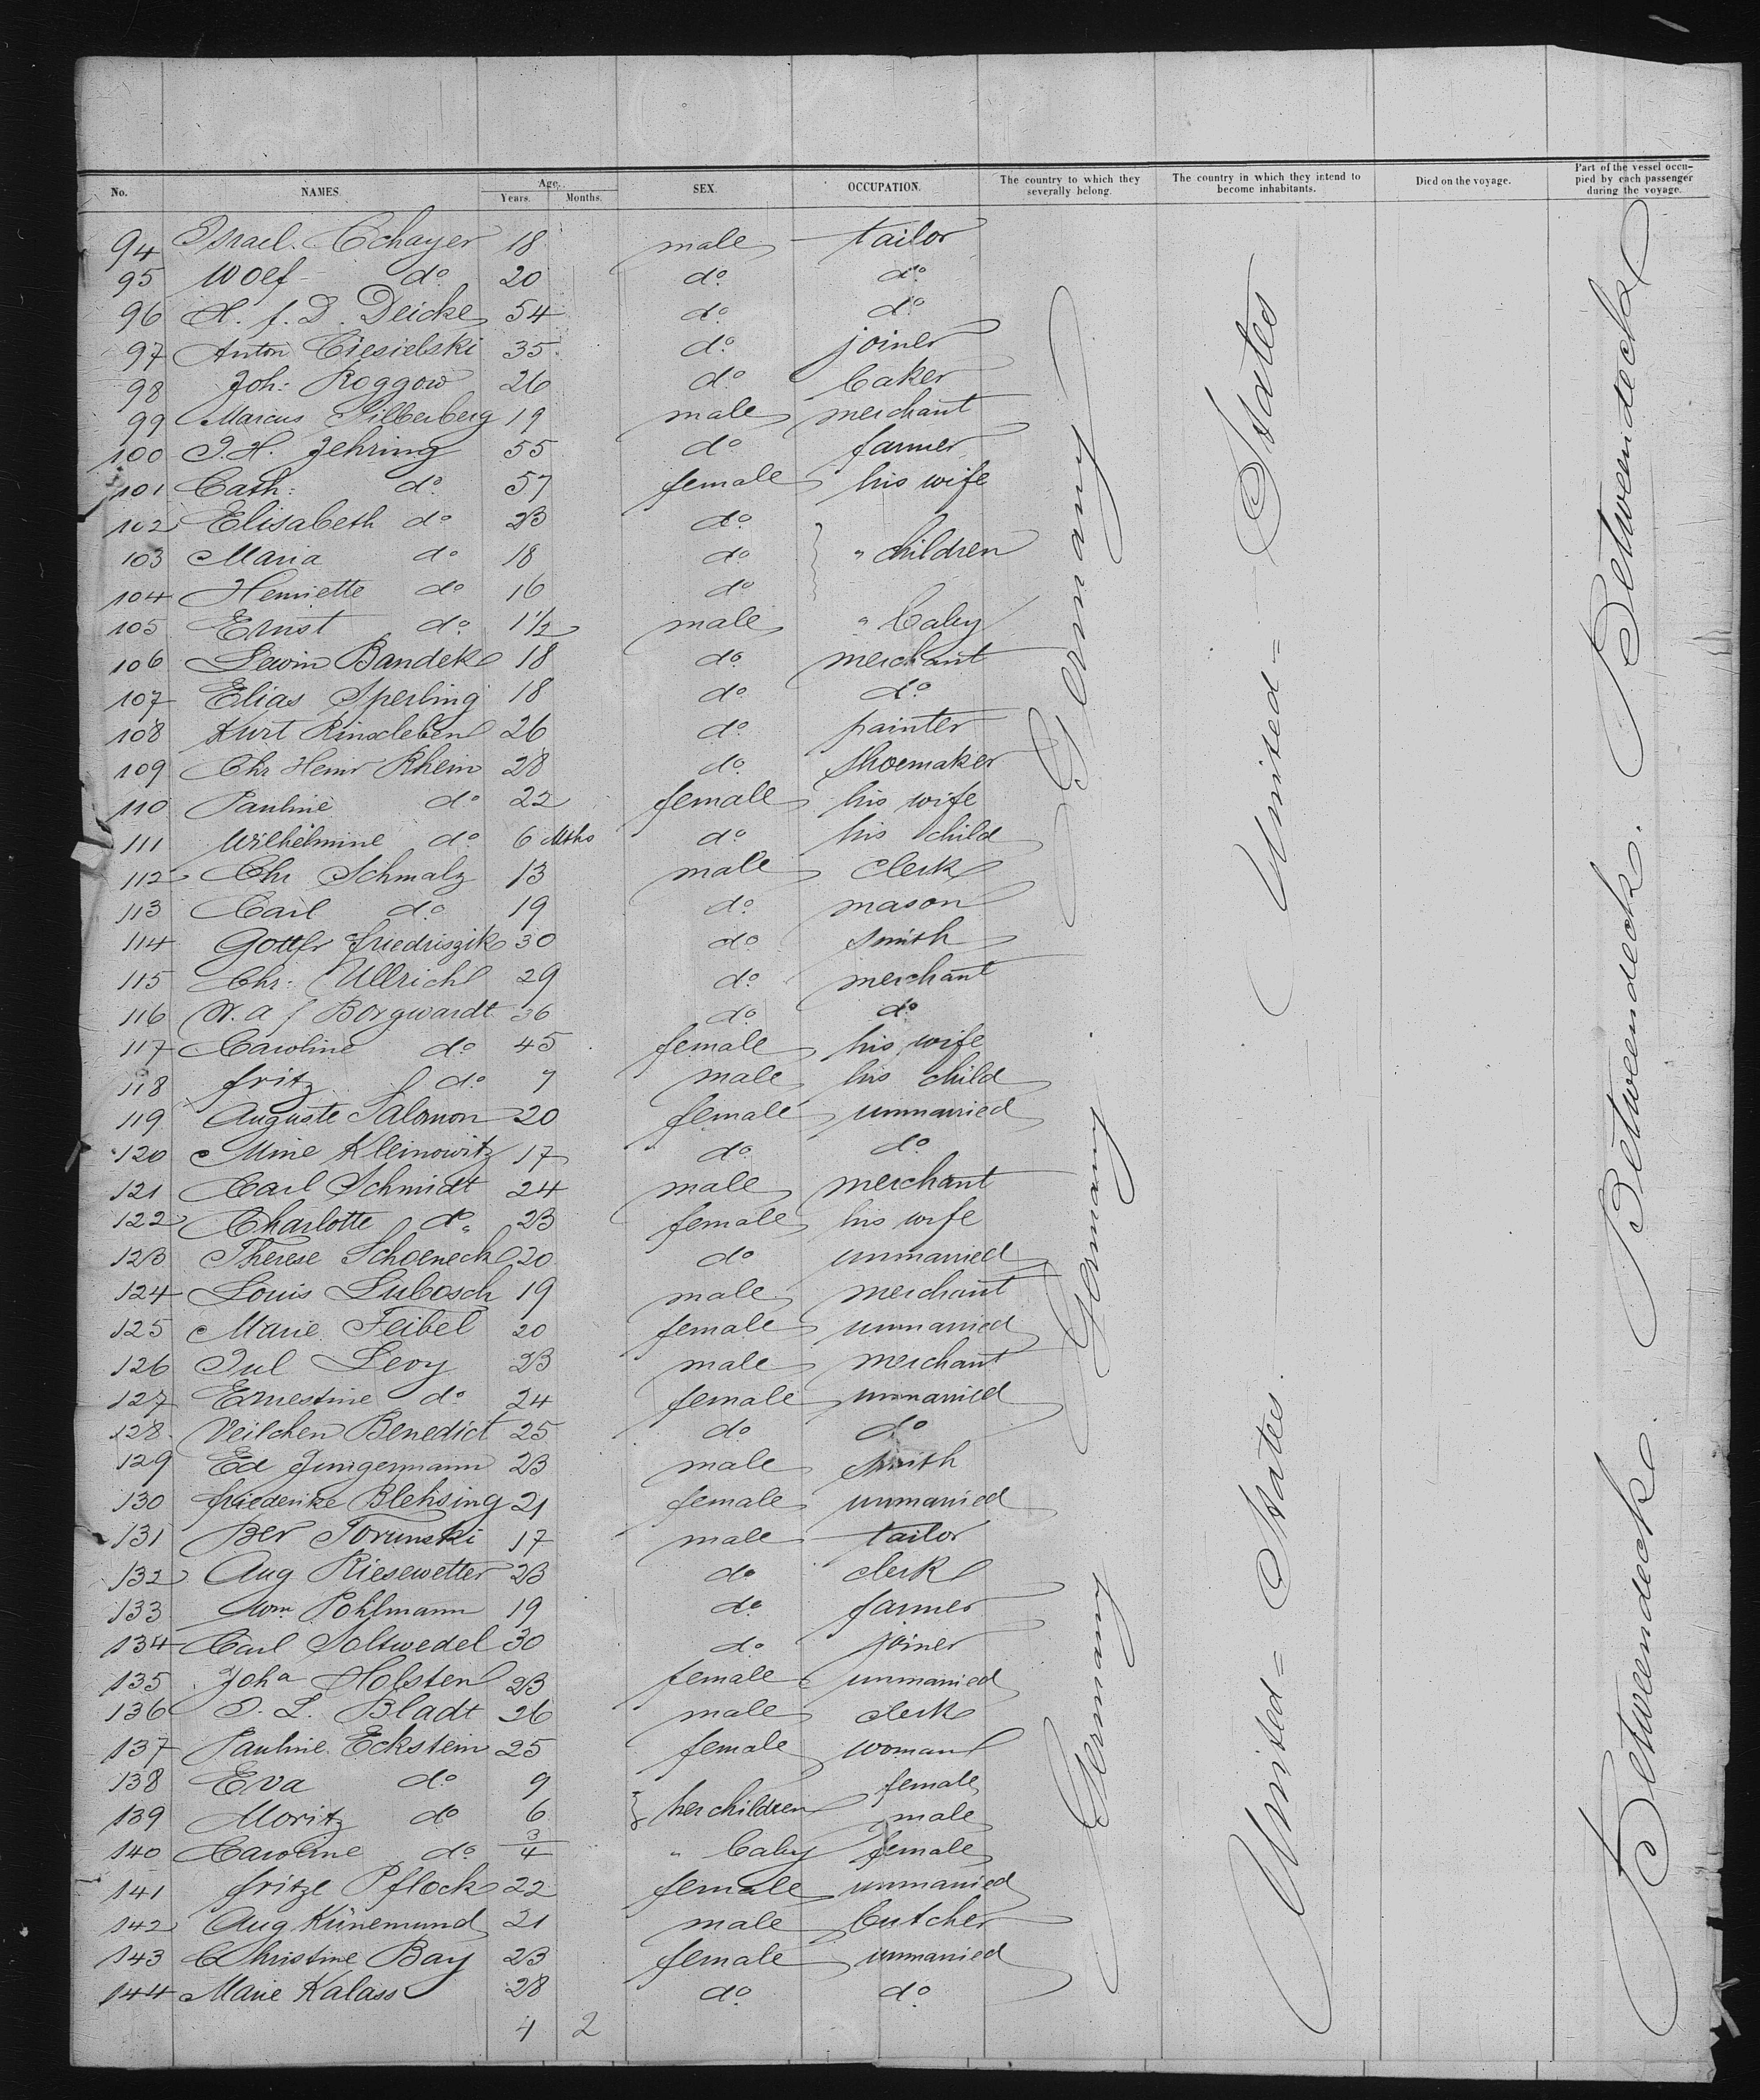 No. NAMES. Age. Years. Months. SEX. OCCUPATION. The country to which they severally belong. The country in which they intend to become inhabitants. Died on the voyage. Part of the vessel occupied by each passenger during the voyage.
94 Israel Schayer 18 male tailor
95 Wolf do 20 do do
96 H. f. D. Deicke 54 do do
97 Anton Ciesielski 35 do joiner
98 Joh: Roggow 26 do baker
99 Marcus Silberberg 19 male merchant
100 J. H. Jehring 55 do farmer
101 Cath: do 57 female his wife
102 Elisabeth do 23 do
103 Maria do 18 do " children
104 Henriette do 16 do
105 Ernst do 1½ male " baby
106 Lewin Bandek 18 do merchant
107 Elias Sperling 18 do do
108 Kurt Rinscleben 26 do painter
109 Chr Heinr Rhein 28 do shoemaker
110 Pauline do 22 female his wife
111 Wilhelmine do 6 Mths do his child
112 Chr Schmalz 13 male clerk
113 Carl do 19 do mason
114 Gottfr friedriszik 30 do smith
115 Chr: Ullrich 29 do merchant
116 W. a f Borgwardt 36 do do
117 Caroline do 45 female his wife
118 fritz do 7 male his child
119 Auguste Salomon 20 female unmarried
120 Mine Kleinowitz 17 do do
121 Carl Schmidt 24 male merchant
122 Charlotte do 23 female his wife
123 Therese Schoeneck 20 do unmarried
124 Louis Lubosch 19 male merchant
125 Marie Feibel 20 female unmarried
126 Jul Levy 23 male merchant
127 Ernestine do 24 female unmarried
128 Veilchen Benedict 25 do do
129 Ed Jungermann 23 male smith
130 friederike Blehsing 21 female unmarried
131 Ber Torunski 17 male tailor
132 Aug Kiesewetter 23 do clerk
133 Wm Pohlmann 19 do farmer
134 Carl Soltwedel 30 do joiner
135 Joha Holsten 23 female unmarried
136 J. L. Bladt 26 male clerk
137 Pauline Eckstein 25 female woman
138 Eva do 9 female
139 Moritz do 6 her children male
140 Caroline do 3/4 " baby female
141 fritze Pflock 22 female unmarried
142 Aug Künemund 21 male butcher
143 Christine Bay 23 female unmarried
144 Marie Kalass 28 do do
4 2
Germany
Germany
Germany
United = States
United = States
Betweendeck
Betweendeck.
Betweendeck.